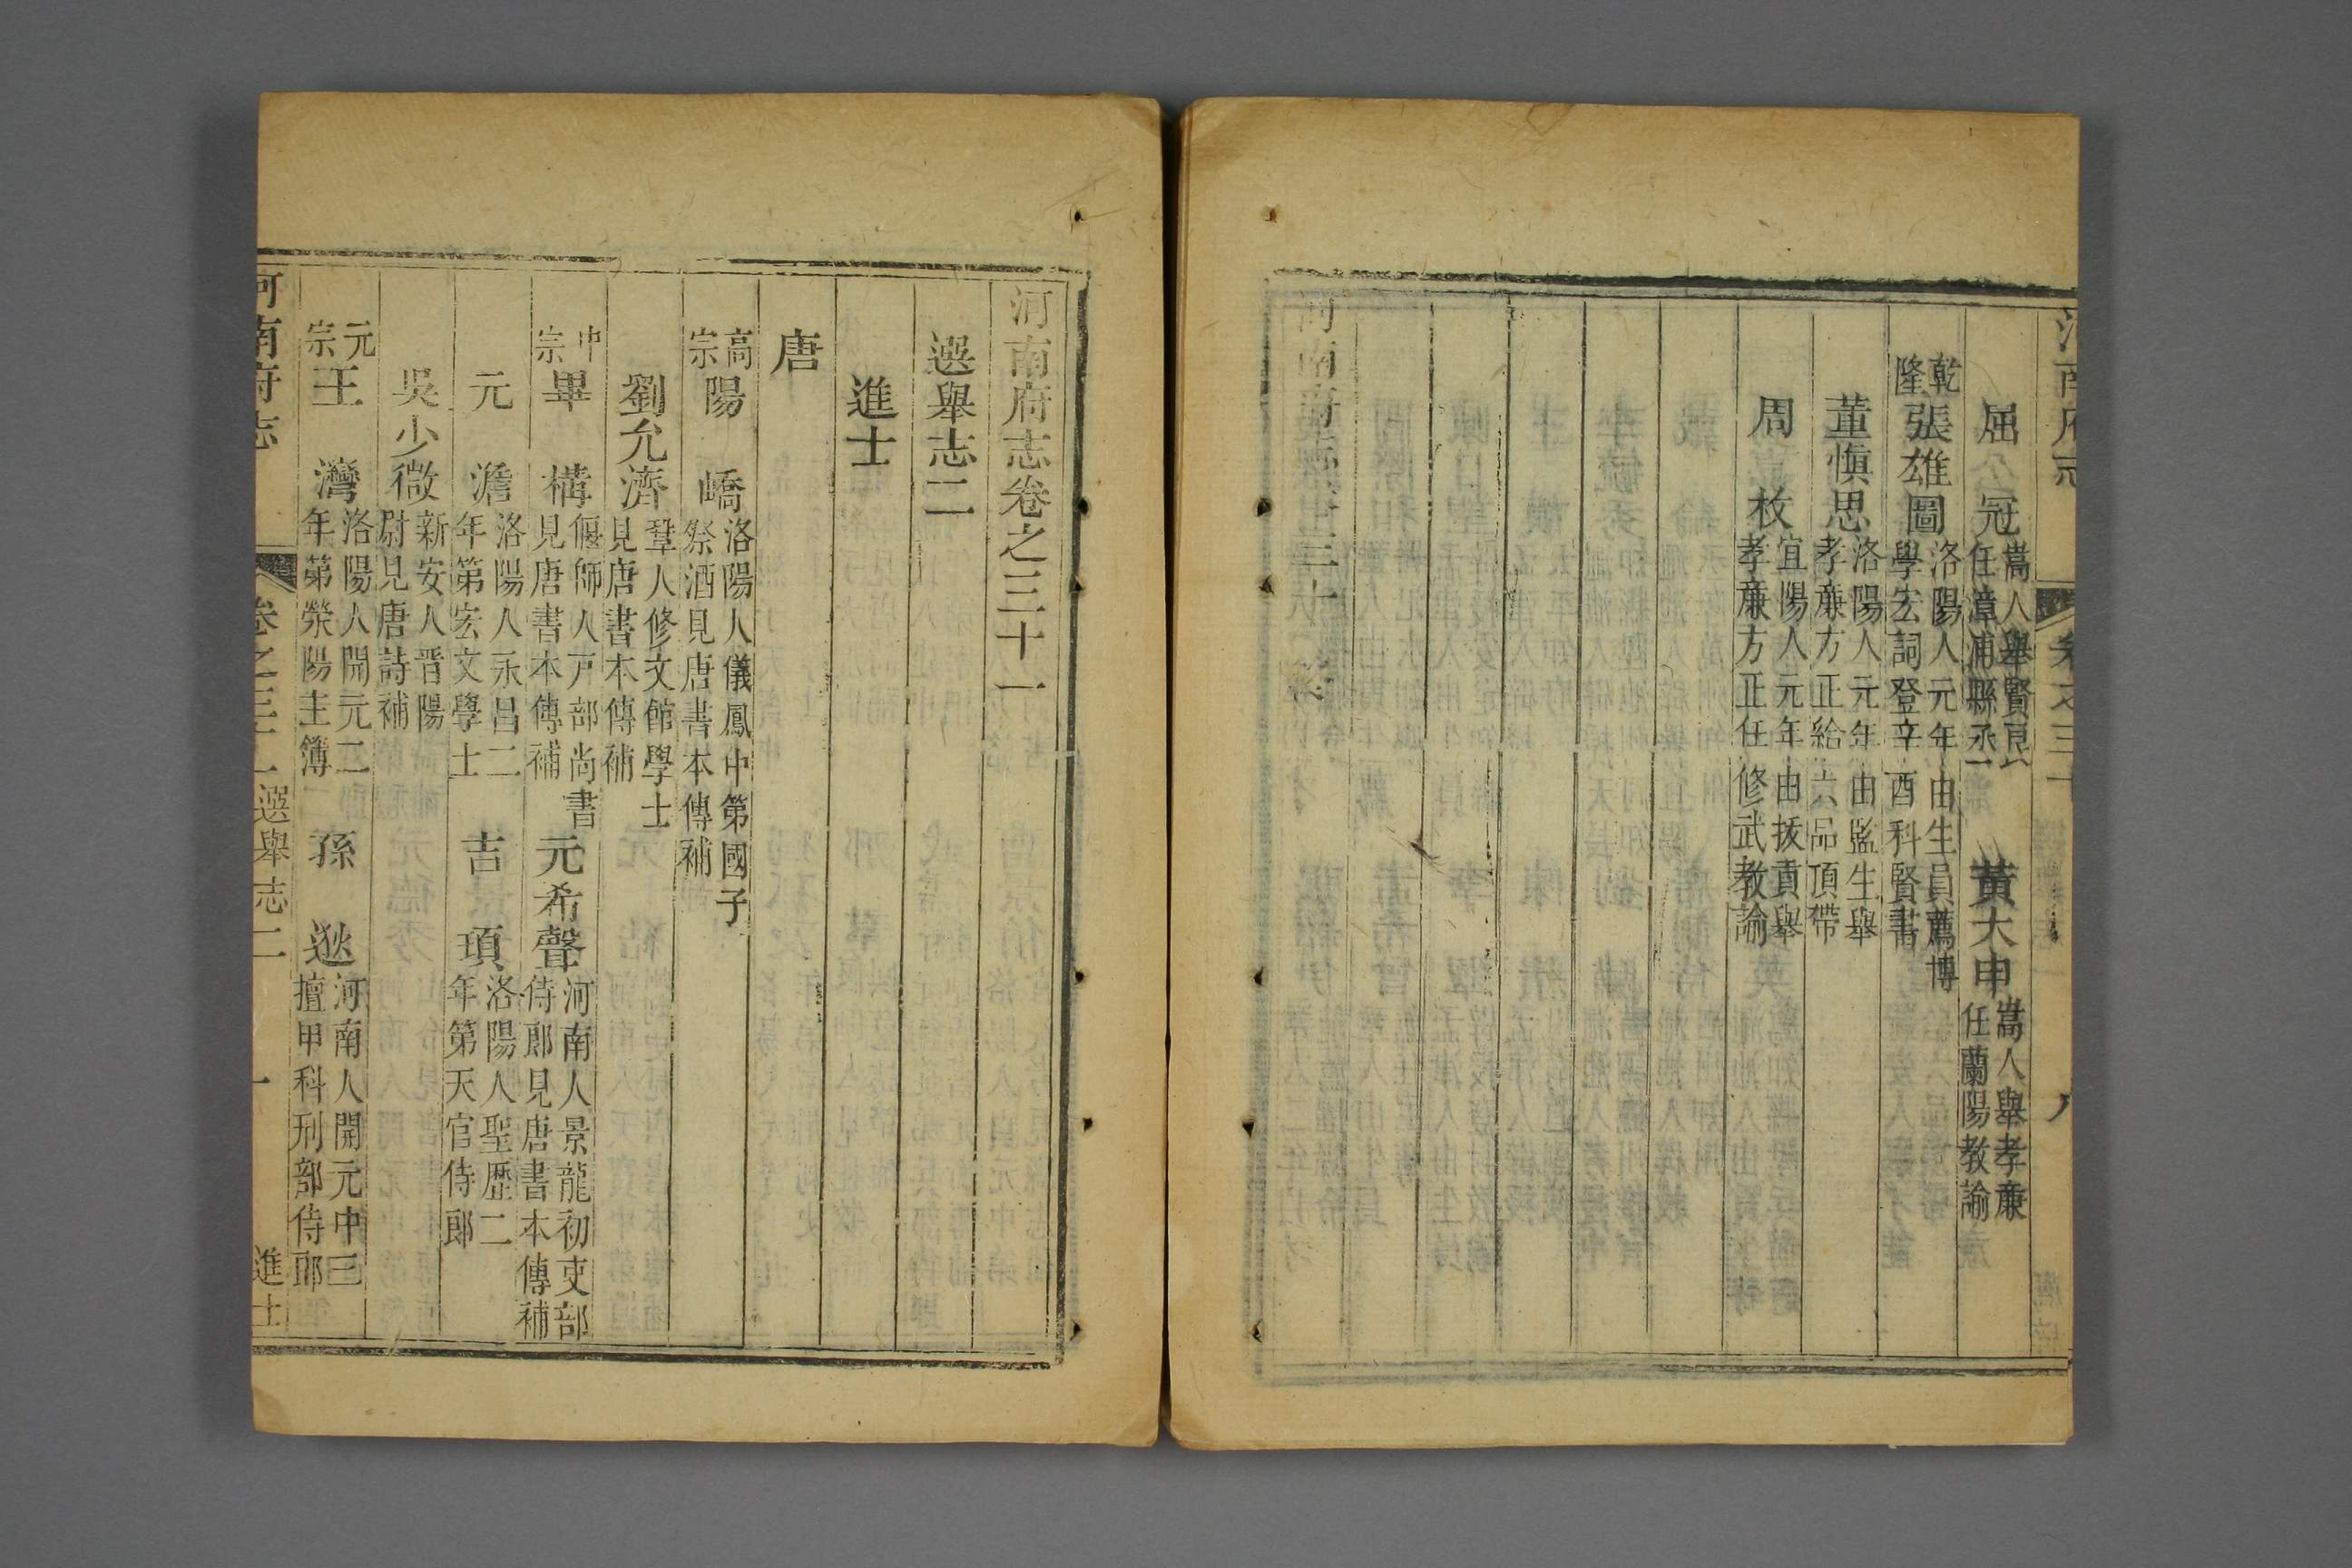 屈冠嵩人舉賢良任漳浦縣丞 黃大中嵩人舉孝廉任蘭陽教諭
乾隆張雄圖洛陽人元年由生員薦博學宏詞登辛酉科賢書
董慎思洛陽人元年由監生舉孝廉方正給六品頂帶
周枚宜陽人元年由拔貢舉孝廉方正任修武教諭
河南府志卷之三十一
選舉志二
進士
唐
高宗陽嶠洛陽人儀鳳中第國子祭酒見唐書本傳補
劉允濟鞏人修文館學士見唐書本傳補
中宗畢構偃師人戶部尚書見唐書本傳補 元希聲河南人景龍初吏部侍郎見唐書本傳補
元澹洛陽人永昌二年第宏文學士 吉頊洛陽人聖歷二年第天官侍郎
吳少微新安人晉陽尉見唐詩補
元宗王灣洛陽人開元二年第滎陽主簿 孫逖河南人開元中三擅甲科刑部侍郎
河南府志 卷之三十一選舉志二 一 進士